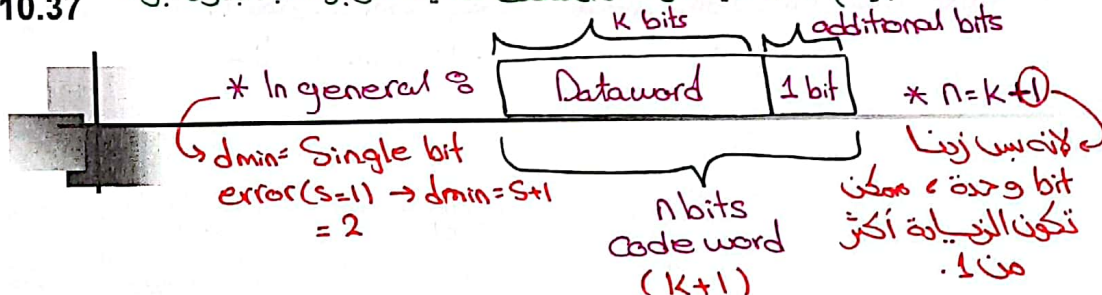 10.37
K bits
additional bits
* In general :
Dataword
1 bit
* n=k+1
dmin= Single bit
error(s=1) → dmin=S+1
= 2
n bits
code word
(K+1)
لانه بس زدنا
bit وحدة، ممكن
تكون الزيادة أكثر
من 1.